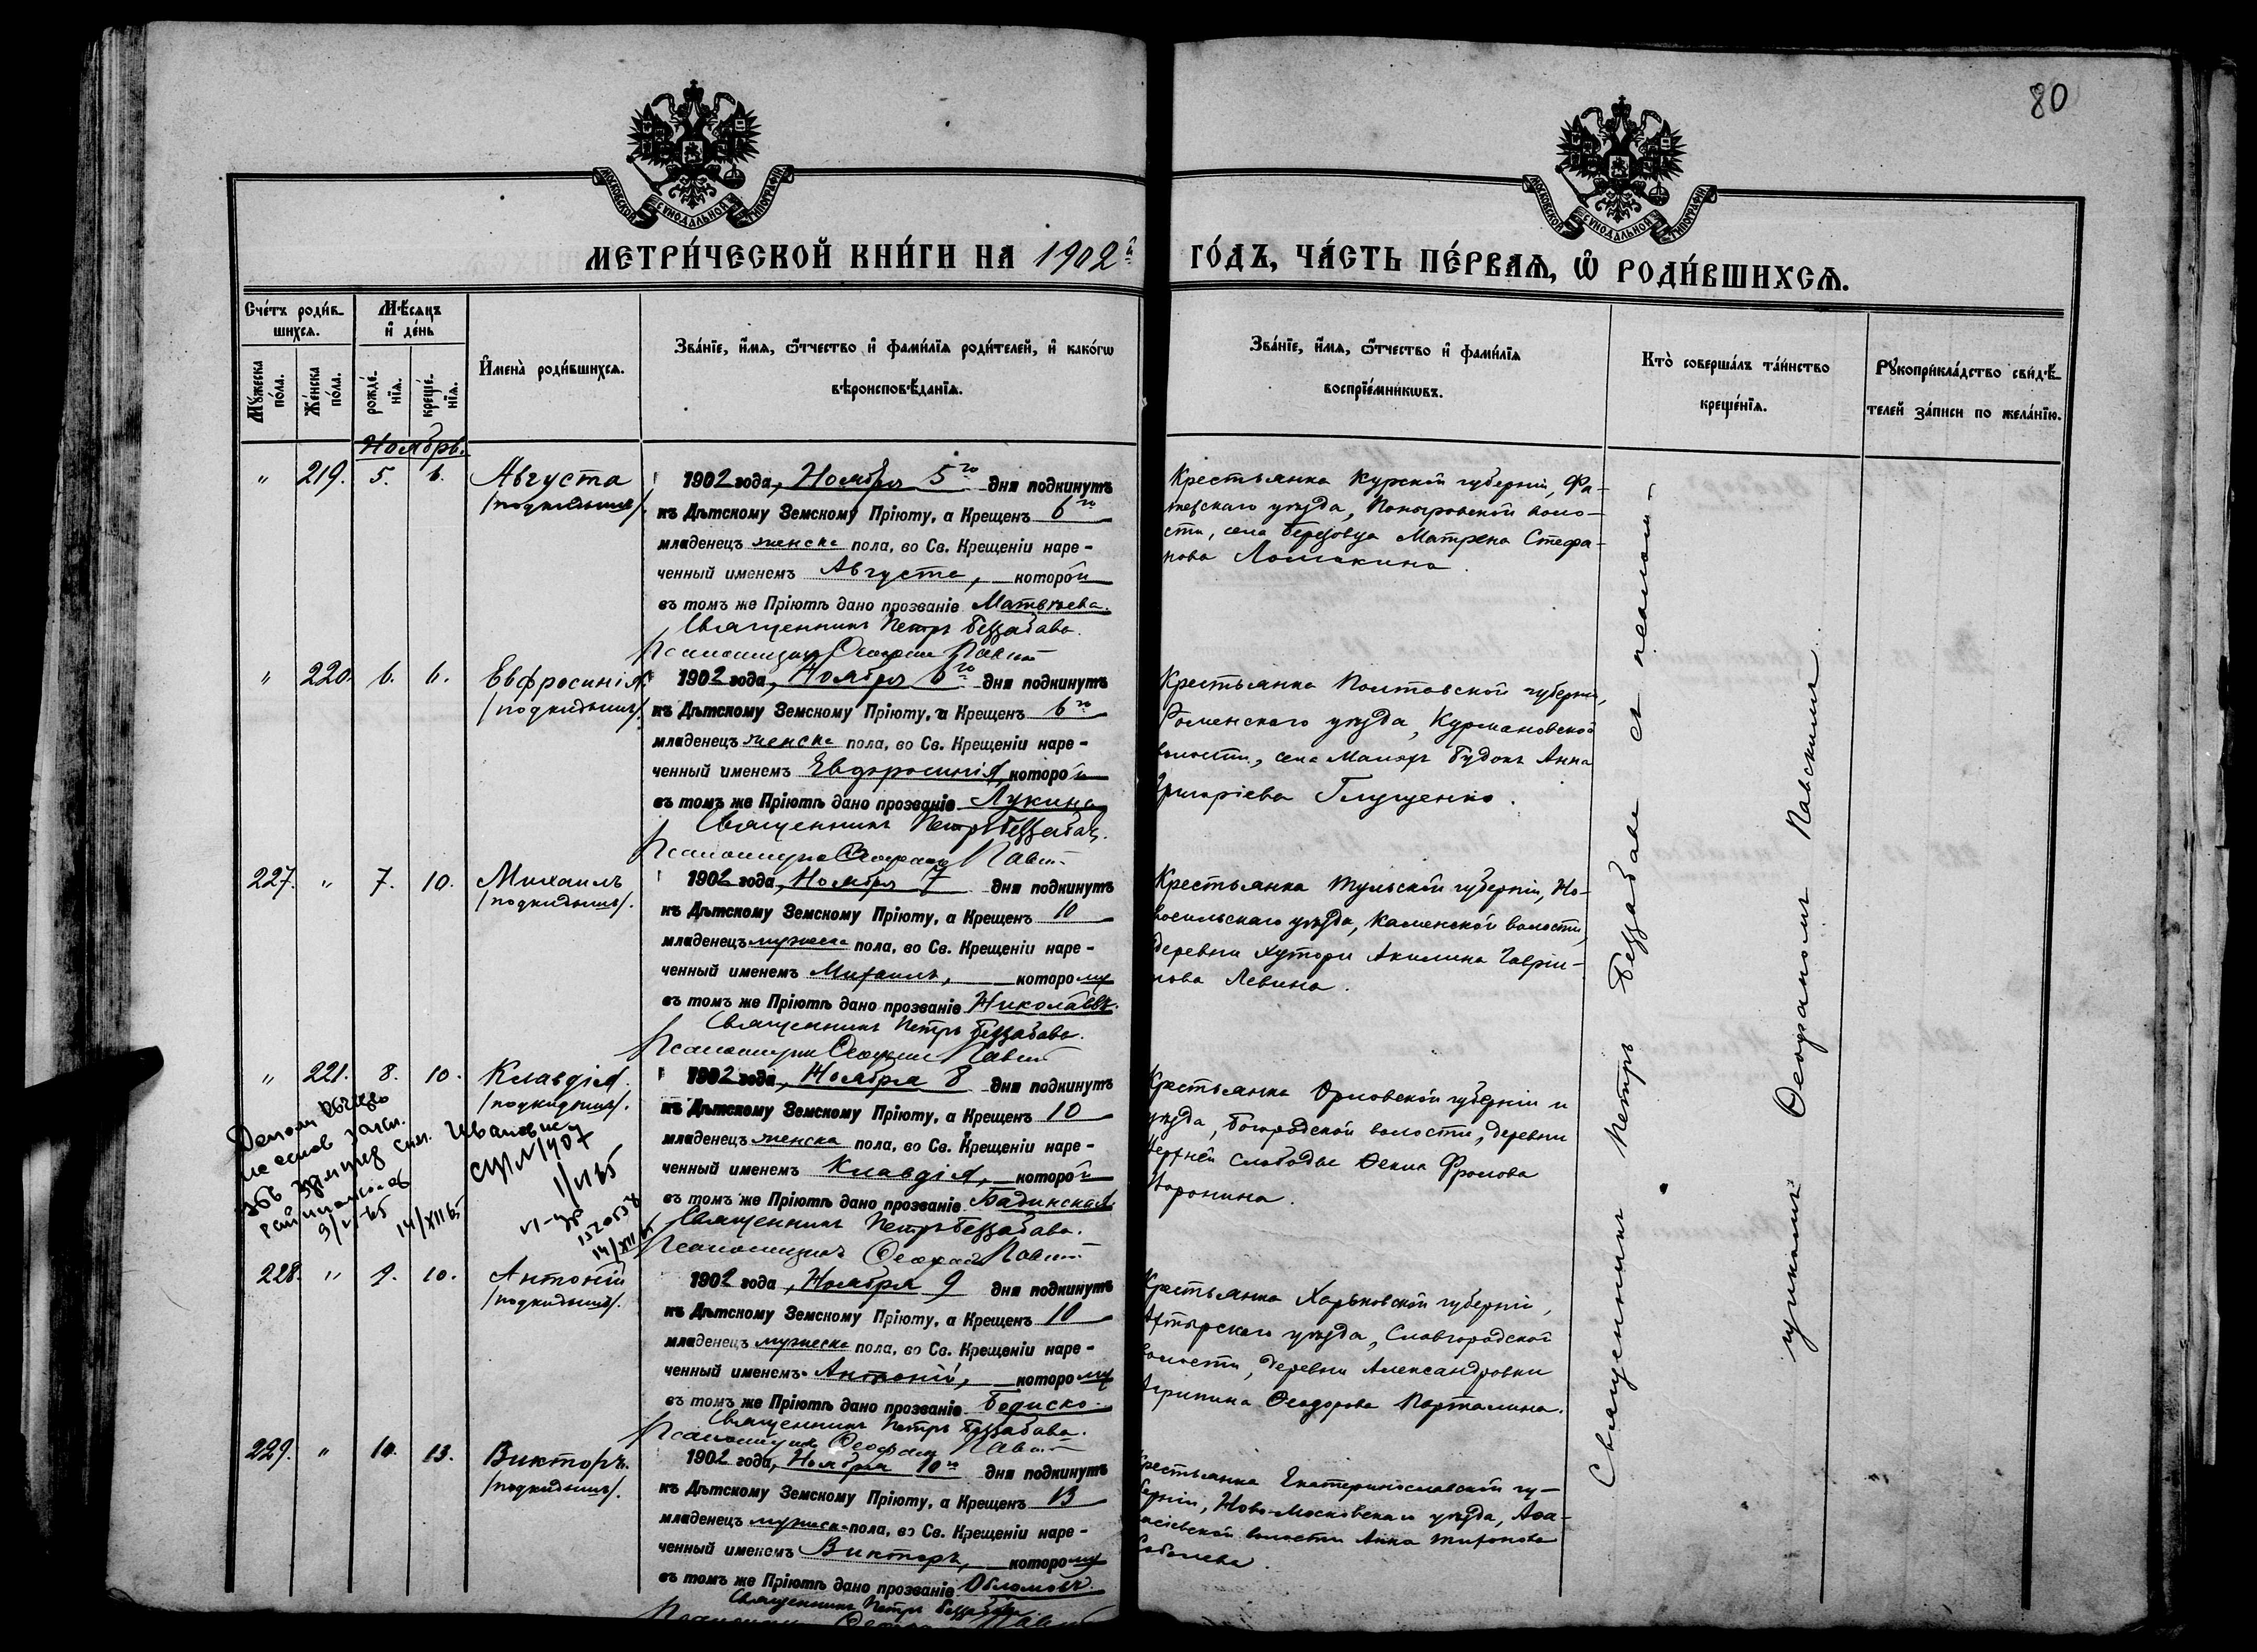 80
МОСКОВСКОЙ СѴНОДАЛЬНОЙ ТИПОГРАФІИ
МОСКОВСКОЙ СѴНОДАЛЬНОЙ ТИПОГРАФІИ
МЕТРИ́ЧЕСКОЙ КНИ́ГИ НА 1902й ГО́ДЪ, ЧА́СТЬ ПЕ́РВАѦ, Ѡ҆ РОДИ́ВШИХСѦ.
Сче́тъ роди́в-
шихсѧ.
Мꙋжеска по́ла.
Же́нска по́ла.
Мѣ́сѧцъ и҆ де́нь
рожде́-
нїѧ.
креще́-
нїѧ.
И҆мена̀ роди́вшихсѧ.
Зва́нїе, и҆́мѧ, ѻ҆́тчество и҆ фами́лїѧ роди́телей, и҆ како́гѡ
вѣроисповѣ́данїѧ.
Зва́нїе, и҆́мѧ, ѻ҆́тчество и҆ фами́лїѧ
воспрїе́мникѡвъ.
Кто̀ соверша́лъ та́инство
креще́нїѧ.
Рꙋкоприкла́дство свидѣ́-
телей за́писи по жела́нїю.
Ноябрь.
" 219. 5. 6. Августа
/подкидышъ/.
1902 года, Ноября 5го дня подкинутъ
къ Дѣтскому Земскому Пріюту, а Крещенъ 6го
младенецъ женска пола, во Св. Крещеніи наре-
ченный именемъ Августа, которой
въ томъ же Пріютѣ дано прозваніе Матвѣева.
Священникъ Петръ Беззабава.
Псаломщикъ Ѳеофанъ
Крестьянка Курской губерніи, Фа-
тежскаго уѣзда, Поныровской воло-
сти, села Березовца Матрена Стефа-
нова Ломакина.
" 220. 6. 6. Евфросинія
/подкидышъ/.
1902 года, Ноября 6го дня подкинутъ
къ Дѣтскому Земскому Пріюту, а Крещенъ 6го
младенецъ женска пола, во Св. Крещеніи наре-
ченный именемъ Евфросинія, которой
въ томъ же Пріютѣ дано прозваніе Лукина
Священникъ Петръ Беззабава.
Псаломщикъ Ѳеофанъ
Крестьянка Полтавской губерніи,
Роменскаго уѣзда, Курмановской
волости, села Малыхъ Будокъ Анна
Григоріева Глущенко.
227. " 7. 10. Михаилъ
/подкидышъ/.
1902 года, Ноября 7 дня подкинутъ
къ Дѣтскому Земскому Пріюту, а Крещенъ 10
младенецъ мужеска пола, во Св. Крещеніи наре-
ченный именемъ Михаилъ, которому
въ томъ же Пріютѣ дано прозваніе Николаевъ.
Священникъ Петръ Беззабава.
Псаломщикъ Ѳеофанъ
Крестьянка Тульской губерніи, Но-
восильскаго уѣзда, Каменской волости,
деревни Хутори Акилина Гаврии-
лова Левина.
" 221. 8. 10. Клавдія
/подкидышъ/.
1902 года, Ноября 8 дня подкинутъ
къ Дѣтскому Земскому Пріюту, а Крещенъ 10
младенецъ женска пола, во Св. Крещеніи наре-
ченный именемъ Клавдія, которой
въ томъ же Пріютѣ дано прозваніе Бадинская.
Священникъ Петръ Беззабава.
Псаломщикъ Ѳеофанъ
Крестьянка Орловской губерніи и
уѣзда, Богородской волости, деревни
Верхней Слободы Ѳекла Фролова
Воронина.
14/XII 65
14/XII 65
228. " 9. 10. Антоній
/подкидышъ/.
1902 года, Ноября 9 дня подкинутъ
къ Дѣтскому Земскому Пріюту, а Крещенъ 10
младенецъ мужеска пола, во Св. Крещеніи наре-
ченный именемъ Антоній, которому
въ томъ же Пріютѣ дано прозваніе Бодиско.
Священникъ Петръ Беззабава.
Псаломщикъ Ѳеофанъ
Крестьянка Харьковской губерніи,
Ахтырскаго уѣзда, Славгородской
волости, деревни Александровки
Агрипина Ѳеодорова Парталина.
229. " 10. 13. Викторъ.
/подкидышъ/.
1902 года, Ноября 10го дня подкинутъ
къ Дѣтскому Земскому Пріюту, а Крещенъ 13
младенецъ мужеска пола, во Св. Крещеніи наре-
ченный именемъ Викторъ, которому
въ томъ же Пріютѣ дано прозваніе Обломовъ.
Священникъ Петръ Беззабава
Крестьянка Екатеринославской гу-
берніи, Ново-Московскаго уѣзда, Аѳа-
насіевской волости Анна
Соболева.
Священникъ Петръ Беззабава съ псалом-
щикомъ Ѳеофаномъ Павскимъ.